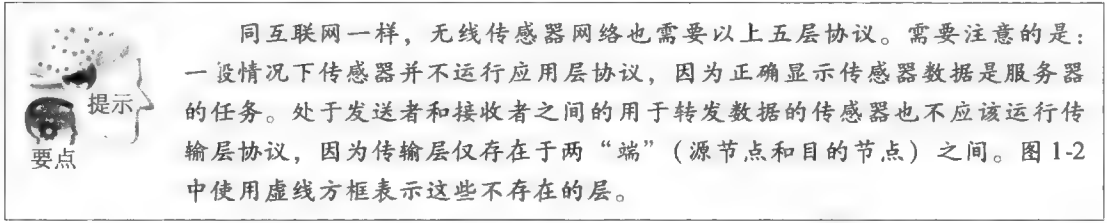 同互联网一样，无线传感器网络也需要以上五层协议。需要注意的是：
一般情况下传感器并不运行应用层协议，因为正确显示传感器数据是服务器
的任务。处于发送者和接收者之间的用于转发数据的传感器也不应该运行传
输层协议，因为传输层仅存在于两“端”（源节点和目的节点）之间。图1-2
中使用虚线方框表示这些不存在的层。
提示
要点